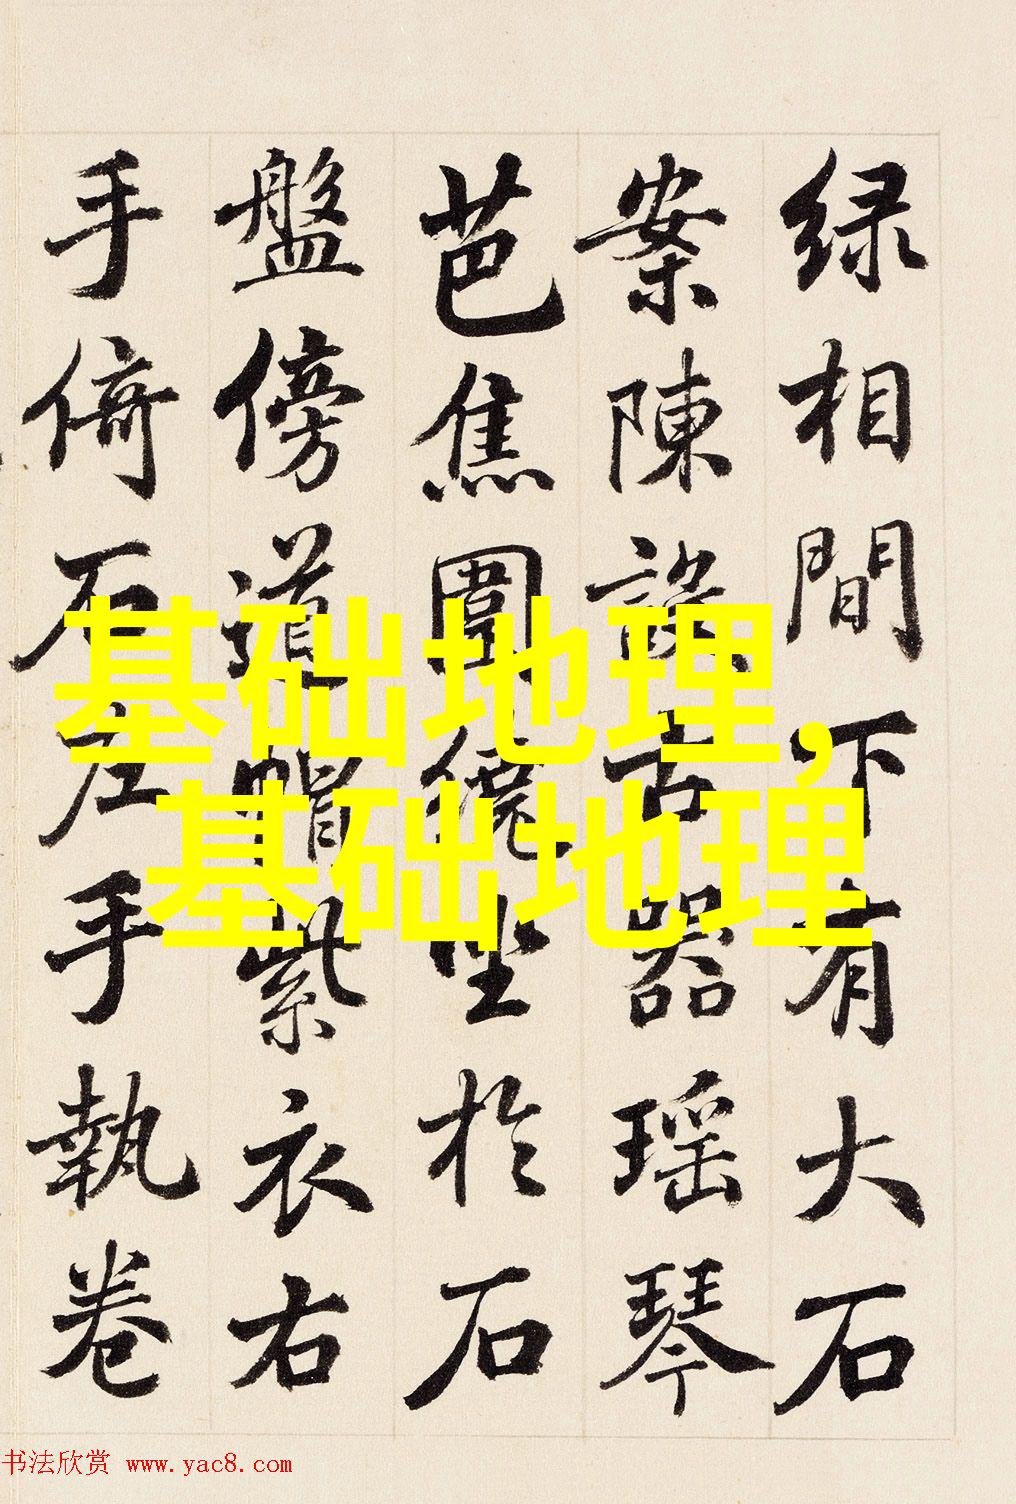 绿相間下有大石
案陳設古器瑶琴
芭焦圍繞坐於石
盤傍道帽紫衣右
手倚石左手執卷
基础地理,
基础地理
书法欣赏 www.yac8.com